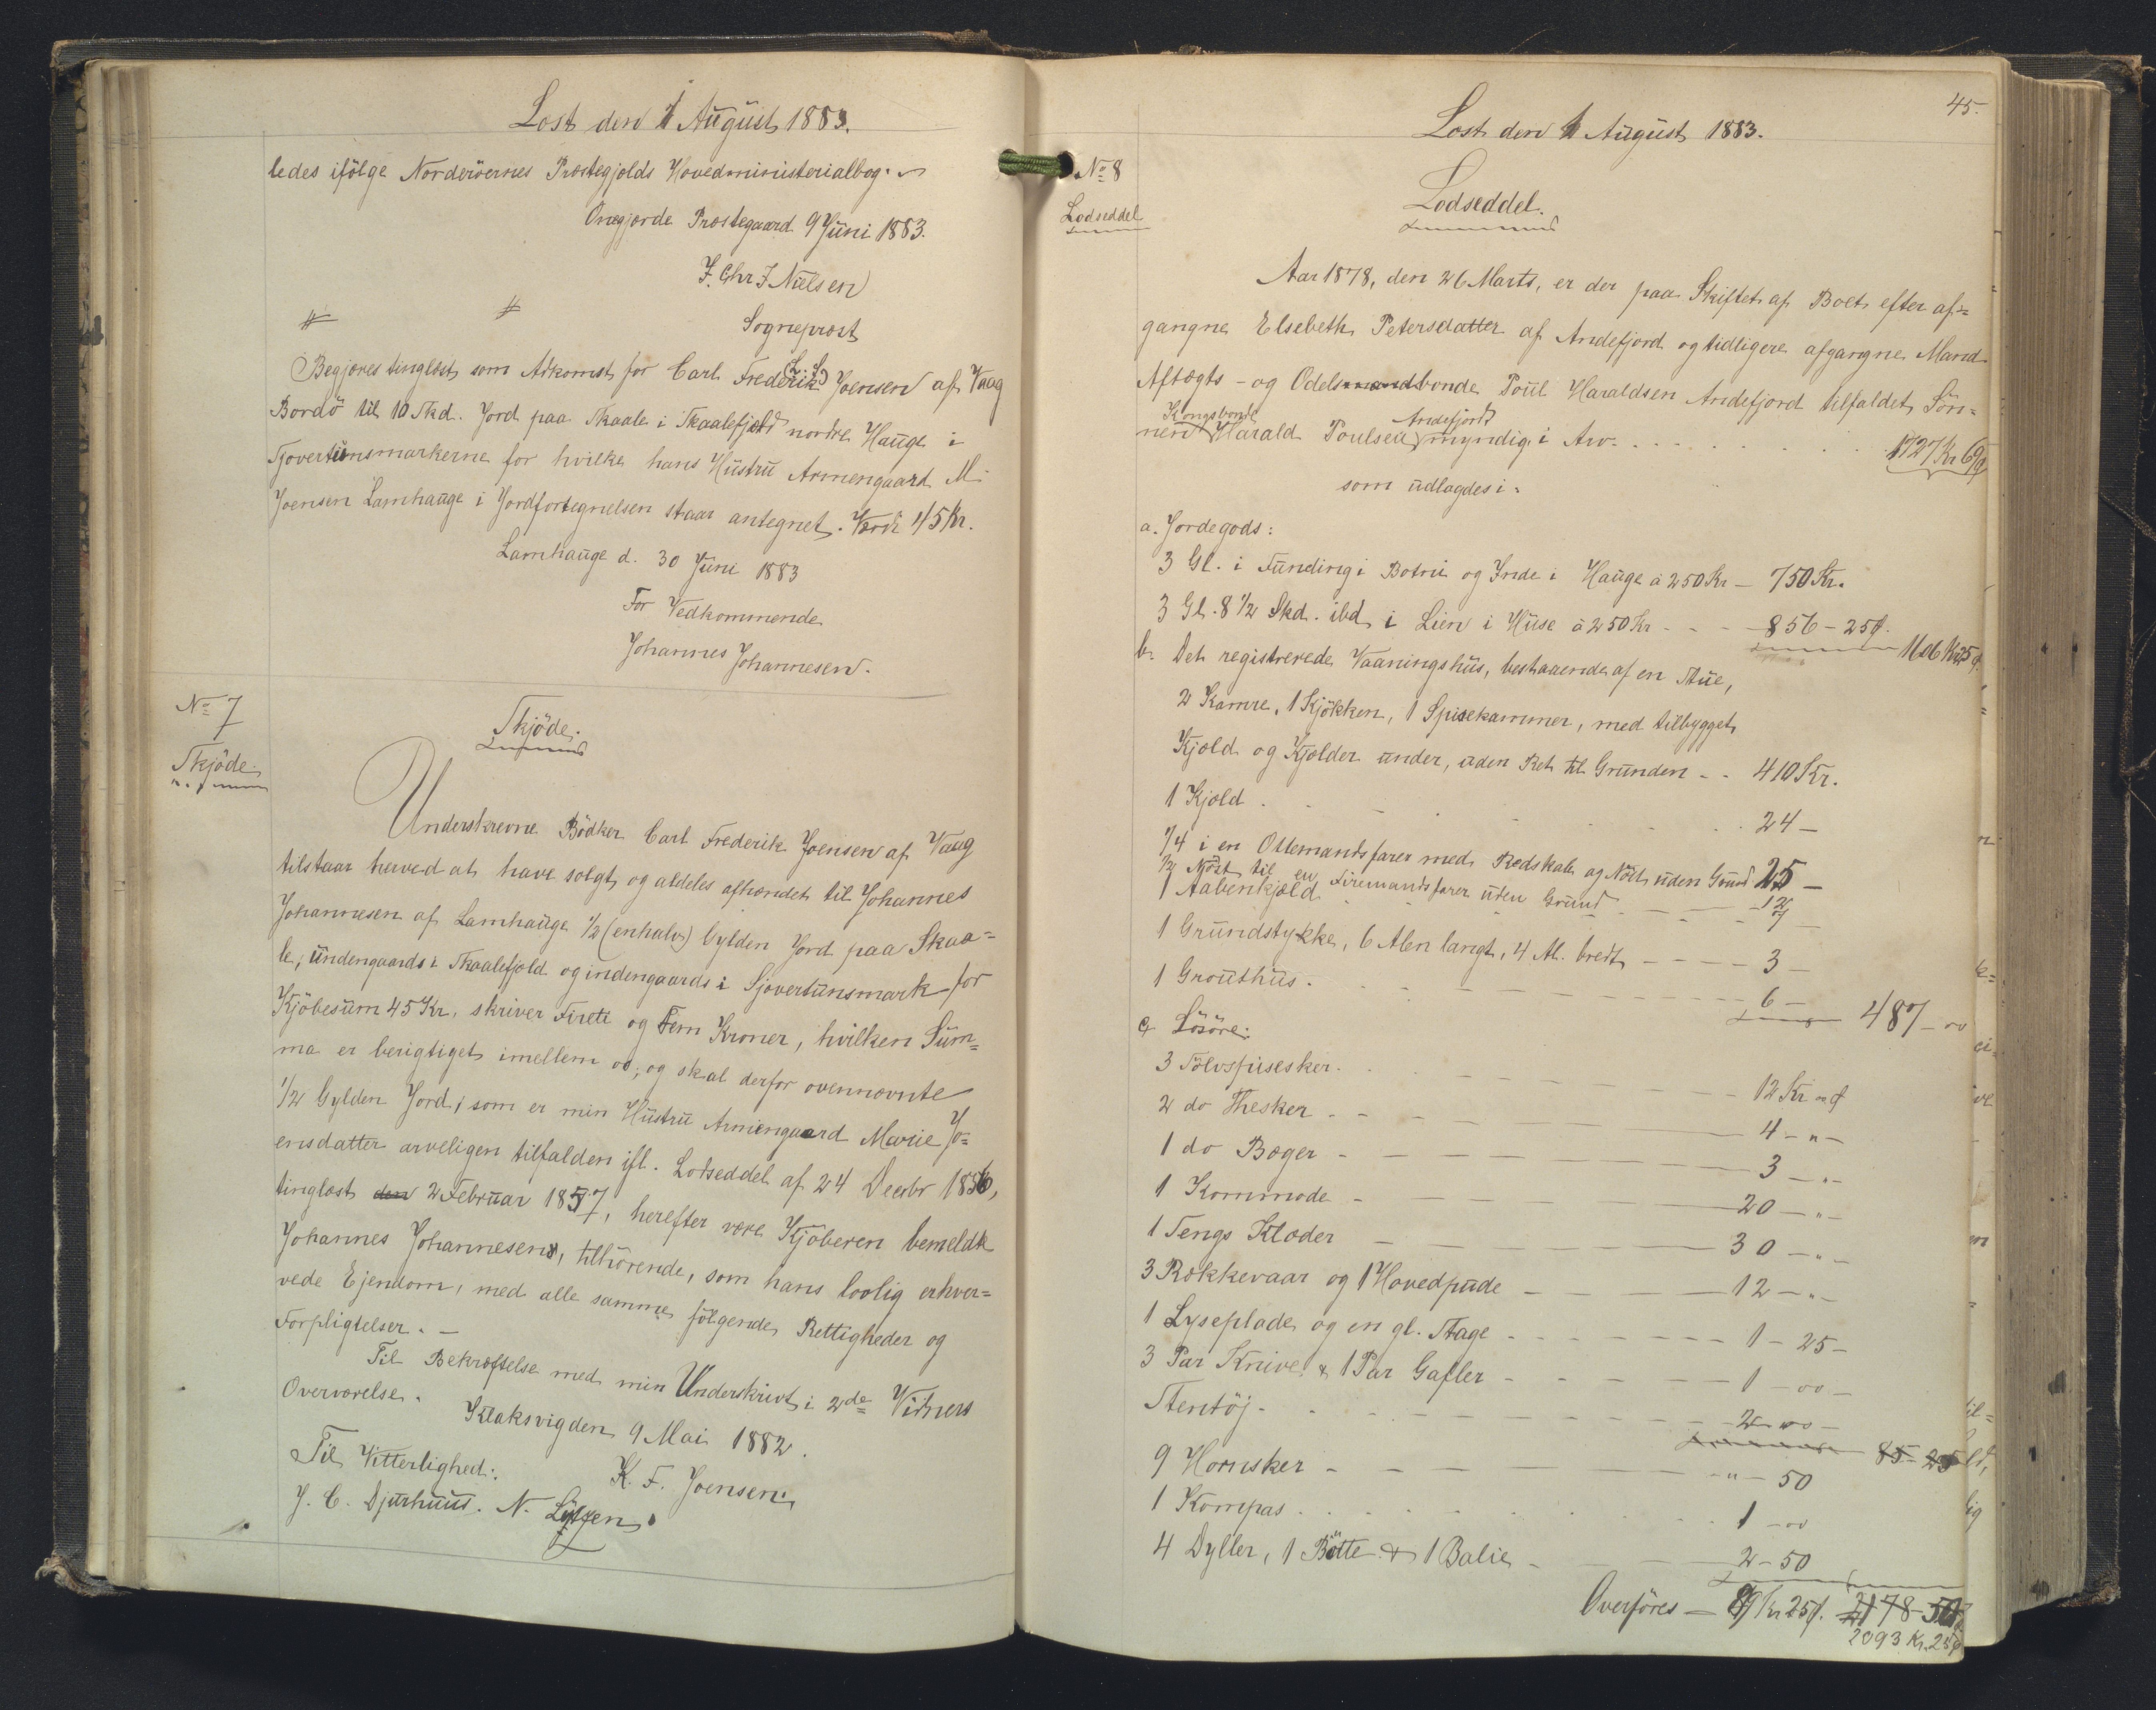 Læst den 1 August 1883.
ledes ifölge Norderöernes Præstegjelds Hovedministerialbog.
Onegjerde Præstegaard 9 Juni 1883.
F. Chr J Nielsen
Sogneprest
L. S.
Begjæres tinglæst som Adkomst for Carl Frederik Joensen af Vaag
Bordö til 10 Skd. Jord paa Skaale i Skaalefjeld nordre Hauge i
Sjovertünsmarkerne for hvilke hans Hüstrü Armengaard M.
Joensen Lamhauge i Jordfortegnelsen staar antegnet. Værdi 45 Kr.
Lamhauge d. 30 Juni 1883
For Vedkommende
Johannes Johannesen.
No 7
Skjöde.
Skjöde.
Underskrevne Bödker Carl Frederik Joensen af Vaag
tilstaar herved at have solgt og aldeles afhændet til Johannes
Johannesen af Lamhauge 1/2 (enhalv) Gylden Jord paa Skaa=
le, üdengaards i Skaalefjeld og indengaards i Sjovertünsmark for
Kjöbesüm 45 Kr. skriver Fireti og Fem Kroner, hvilken Süm=
ma er berigtiget imellem os; og skal derfor ovennævnte
1/2 Gylden Jord, som er min Hüstrü Armengaard Marie Jo=
ensdatter arveligen tilfalden ifl. Lodseddel af 24 Decbr 1856,
tinglæst den 2 Februar 1857, herefter være Kjöberen bemeldte
Johannes Johannesens, tilhörende, som hans lovlig erhver=
vede Ejendom, med alle samme fölgende Rettigheder og
Forpligtelser. —
Til Bekræftelse med min Underskrivt i 2de Vidners
Overværelse.
Klaksvig den 9 Mai 1882.
K. F. Joensen.
Til Vitterlighed:
J. C. Djurhuus. N. Lützen.
45.
Læst den 1 August 1883.
No 8
Lodseddel
Lodseddel.
Aar 1878, den 26 Marts, er der paa Skiftet af Boet efter af=
gangne Elsebeth Petersdatter af Andefjord og tidligere afgangne Mand
Aftægts- og Odelsmandbonde Poül Haraldsen Andefjord tilfaldet Sön=
Kongsbonde Andefjord
nen Harald Poulsen myndig i Arv. . . . . . 1727 Kr 69
som üdlagdes i:
a. Jordegods:
3 Gl. i Fünding i Botni og Inde i Hauge à 250 Kr — 750 Kr.
3 Gl. 8 1/2 Skd. ibd i Lien i Hüse à 250 Kr - - - 856 - 25 ø.
1606 Kr 25 ø.
b. Det registrerede Vaaningshüs, bestaaende af en Stue,
2 Kamre, 1 Kjökken, 1 Spisekammer, med tilbygget
Kjæld og Kjælder ünder, üden Ret til Grunden - - 410 Kr.
1 Kjæld . . . . . 24 —
1/4 i en Ottemandsfarer med Redskab og Nöst üden Grund 25 —
1/2 Nöst til en Firemandsfarer uden Grund - - 12 —
1 Aabenkjæld - - - 7 —
1 Gründstykke, 6 Alen langt, 4 Al. bredt - - - - 3 —
1 Grouthüs. - - - - 6 — 487 - oo
c. Lösöre:
3 Sölvspisesker. - - - - 12 Kr " ø
2 do Thesker - - - - 4 - " -
1 do Bæger - - - - 3 - " -
1 Kommode - - - - 20 - " -
1 Sengs Klæder - - - - 30 - " -
3 Rækkevaar og 1 Hovedpude - - - - 12 - " -
1 Lyseplade og en gl. Stage - - - - 1 - 25 -
3 Par Knive & 1 Par Gafler - - - - 1 - oo -
Stentöj - - - - 2 - oo -
85 - 25
9 Hornsker - - - - " - 50
1 Kompas . . . . 1 - oo
4 Dyller, 1 Bötte & 1 Balie - - 2 - 50
Overföres — 89 Kr 25 ø. 2178 - 50
2093 Kr. 25 ø